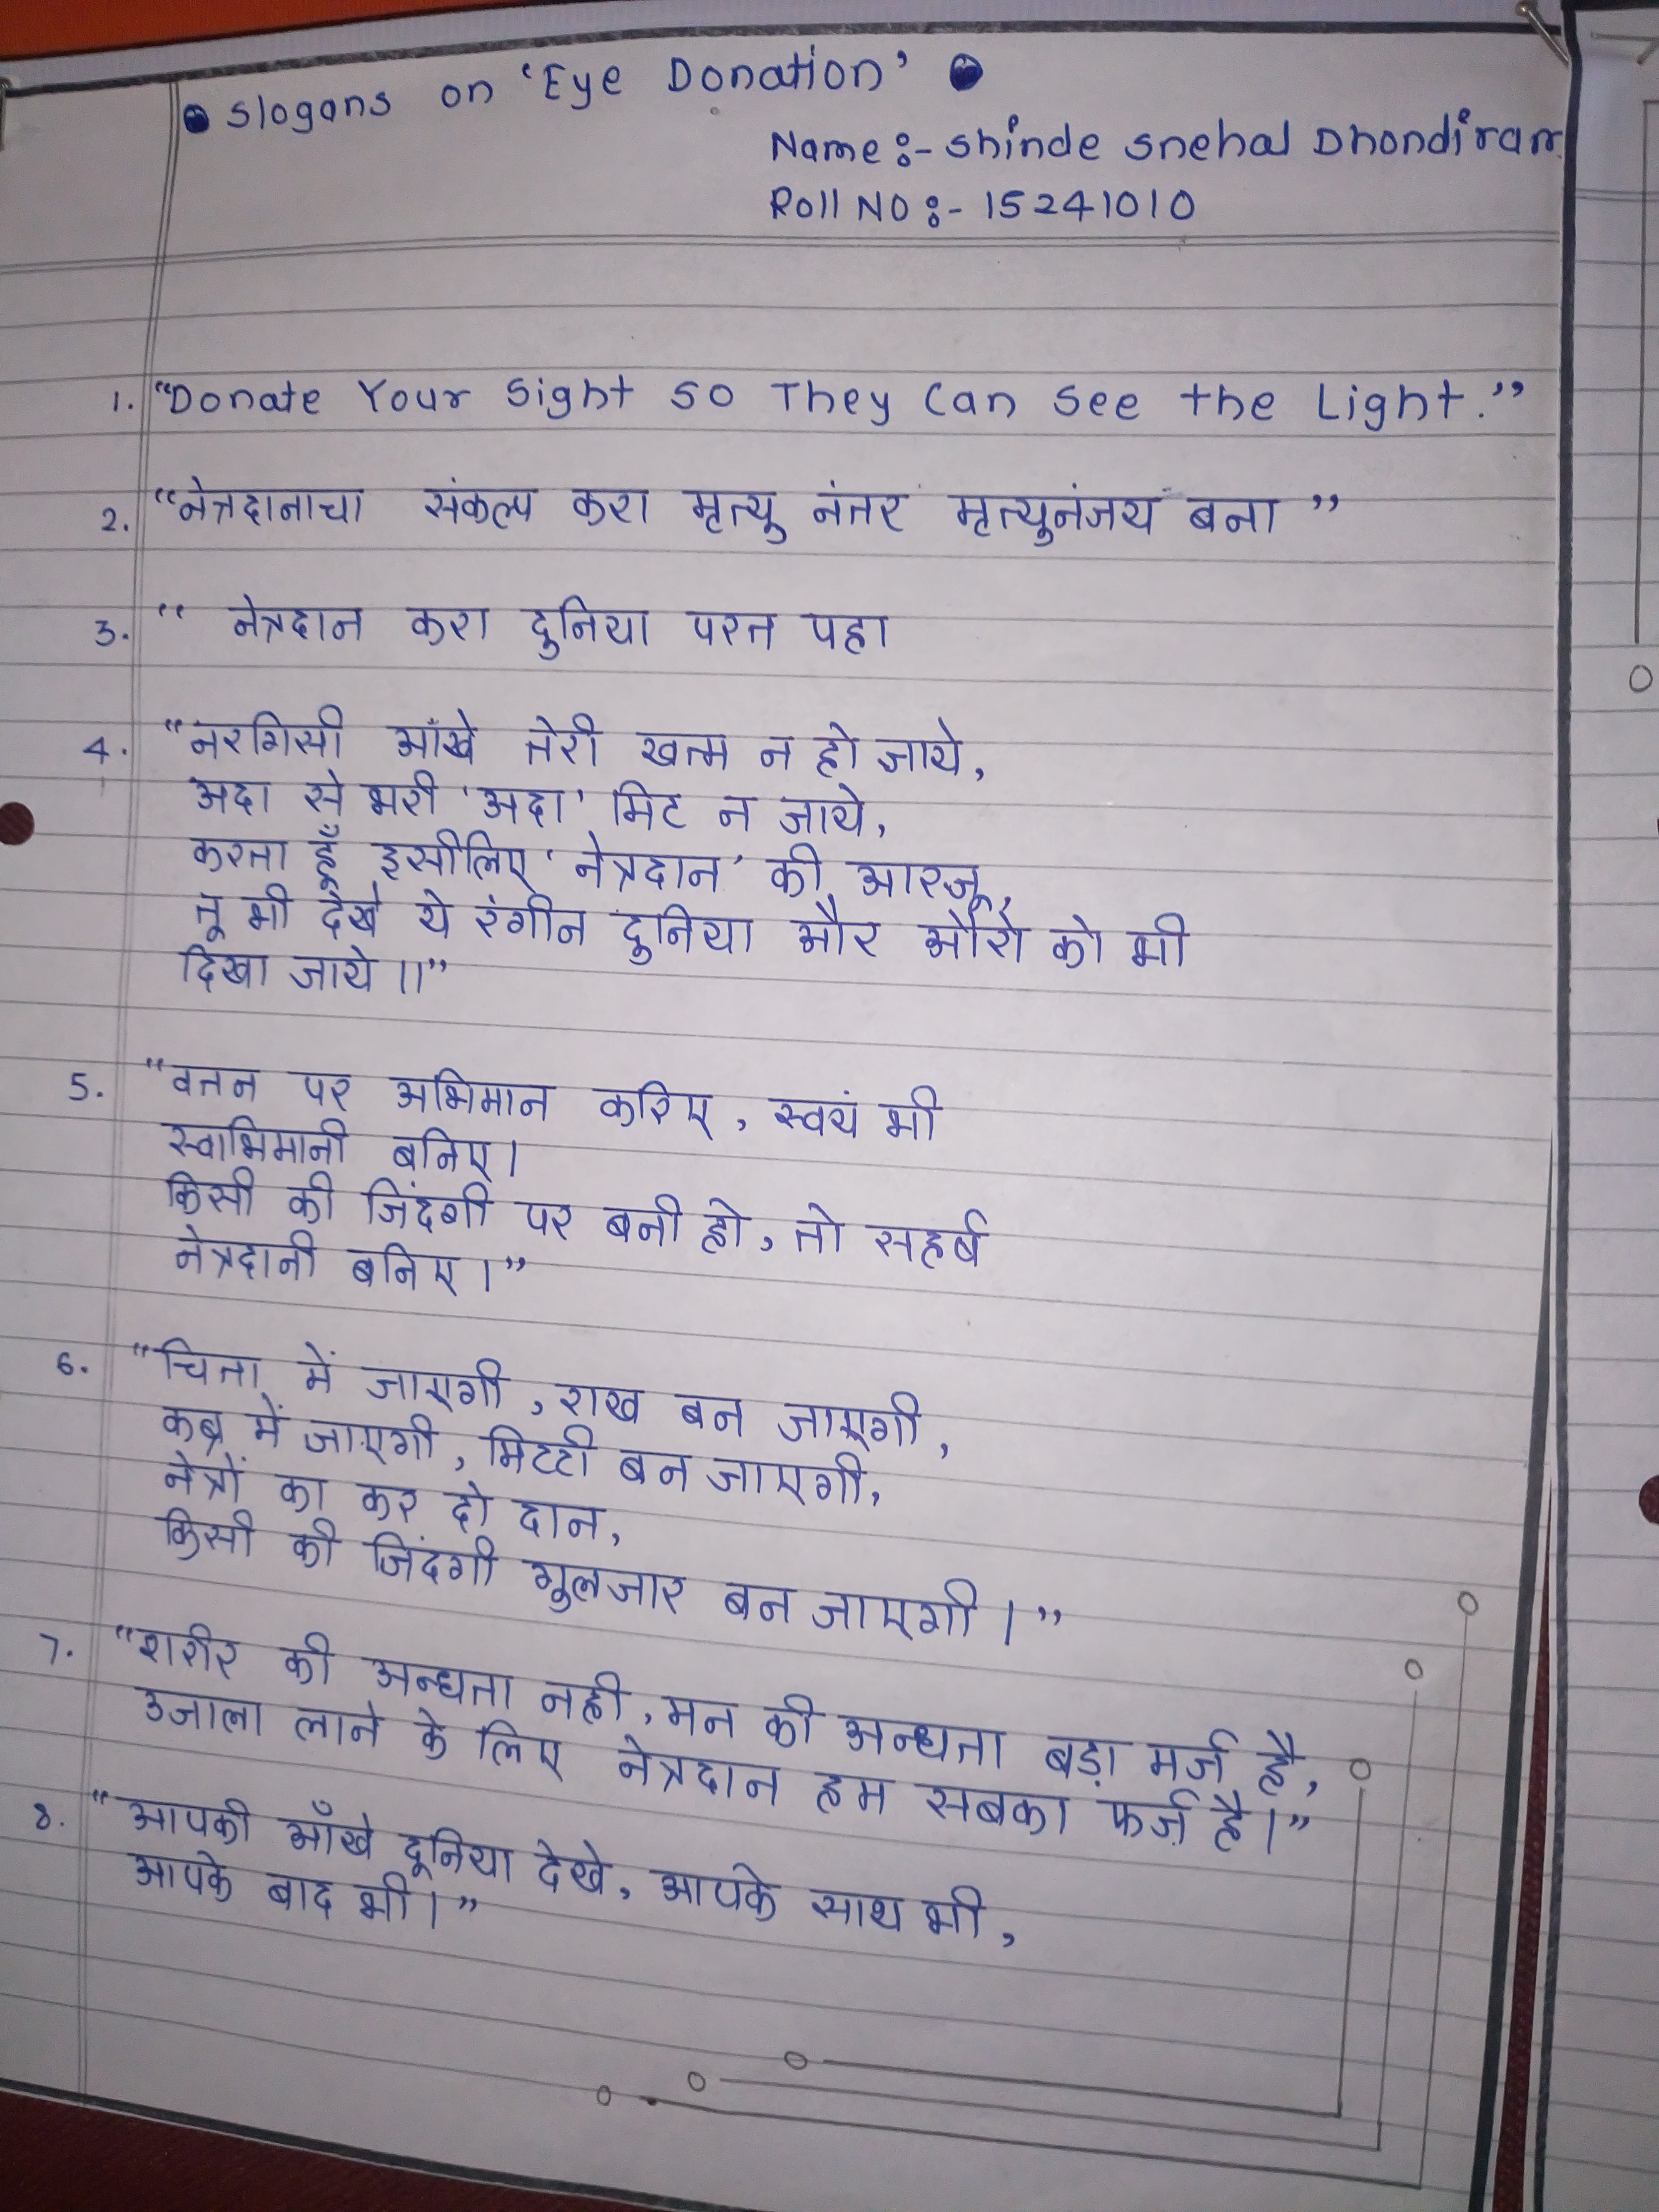 Slogans on 'Eye Donation'
Name :- Shinde Snehal Dhondiram
Roll No :- 15241010
1. "Donate Your Sight So They Can See the Light."
2. "नेत्रदानाचा संकल्प करा मृत्यु नंतर मृत्युनंजय बना"
3. " नेत्रदान करा दुनिया परत पहा
4. "नरगिसी आँखे तेरी खत्म न हो जाये,
अदा से भरी 'अदा' मिट न जाये,
करता हूँ इसीलिए 'नेत्रदान' की आरजू,
तू भी देखे ये रंगीन दुनिया और औरो को भी
दिखा जाये ।।"
5. "वतन पर अभिमान करिए, स्वयं भी
स्वाभिमानी बनिए।
किसी की जिंदगी पर बनी हो, तो सहर्ष
नेत्रदानी बनिए।"
6. "चिता में जाएगी, राख बन जाएगी,
कब्र में जाएगी, मिटटी बन जाएगी,
नेत्रों का कर दो दान,
किसी की जिंदगी गुलजार बन जाएगी।"
7. "शरीर की अन्धता नही, मन की अन्धता बड़ा मर्ज है,
उजाला लाने के लिए नेत्रदान हम सबका फर्ज़ है।"
8. "आपकी आँखे दूनिया देखे, आपके साथ भी,
आपके बाद भी।"